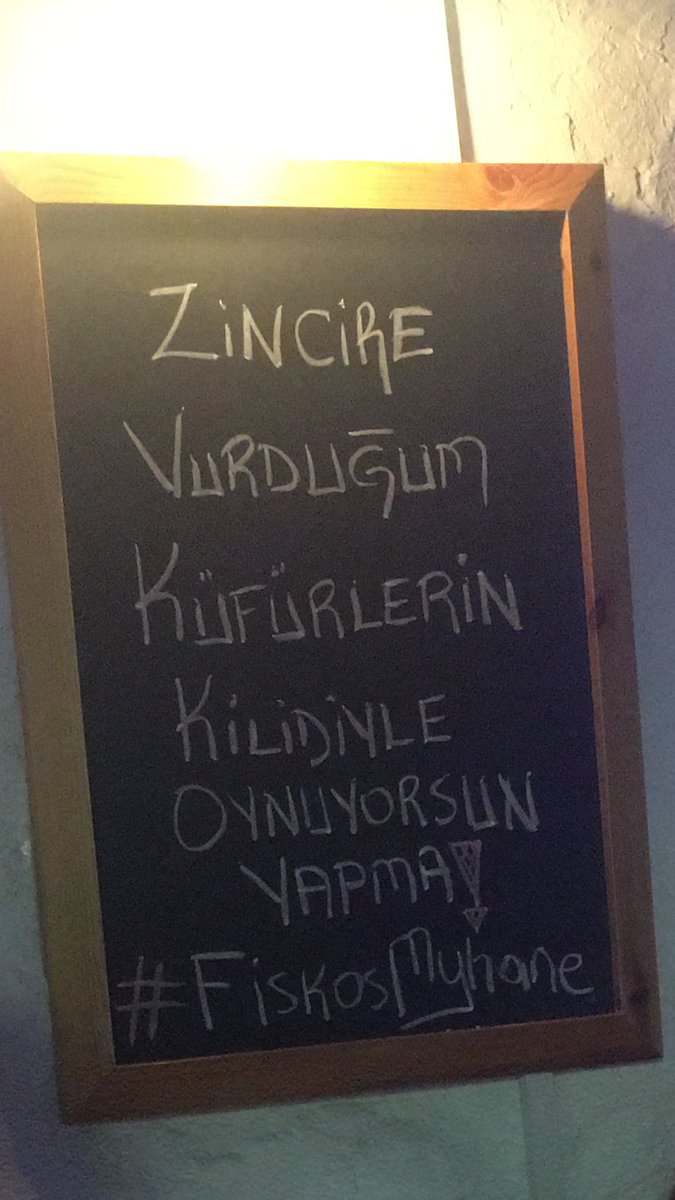 ZİNCİRE
VURDUĞUM
KÜFÜRLERİN
KİLİDİYLE
OYNUYORSUN
YAPMA!
#FiskosMyhane